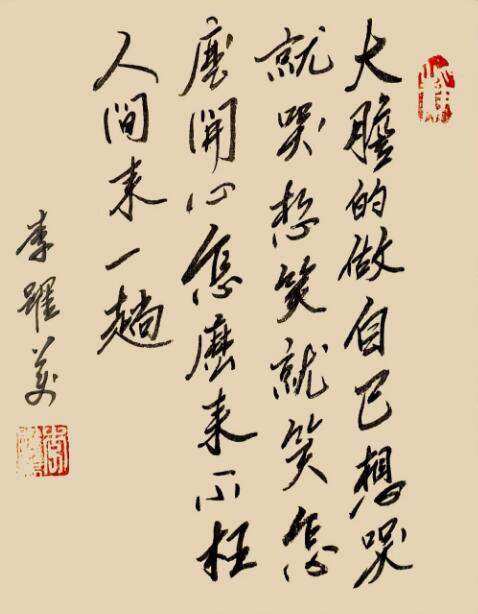 大膽的做自己想哭
就哭想笑就笑怎
麼開心怎麼来不枉
人間来一趟
李躍